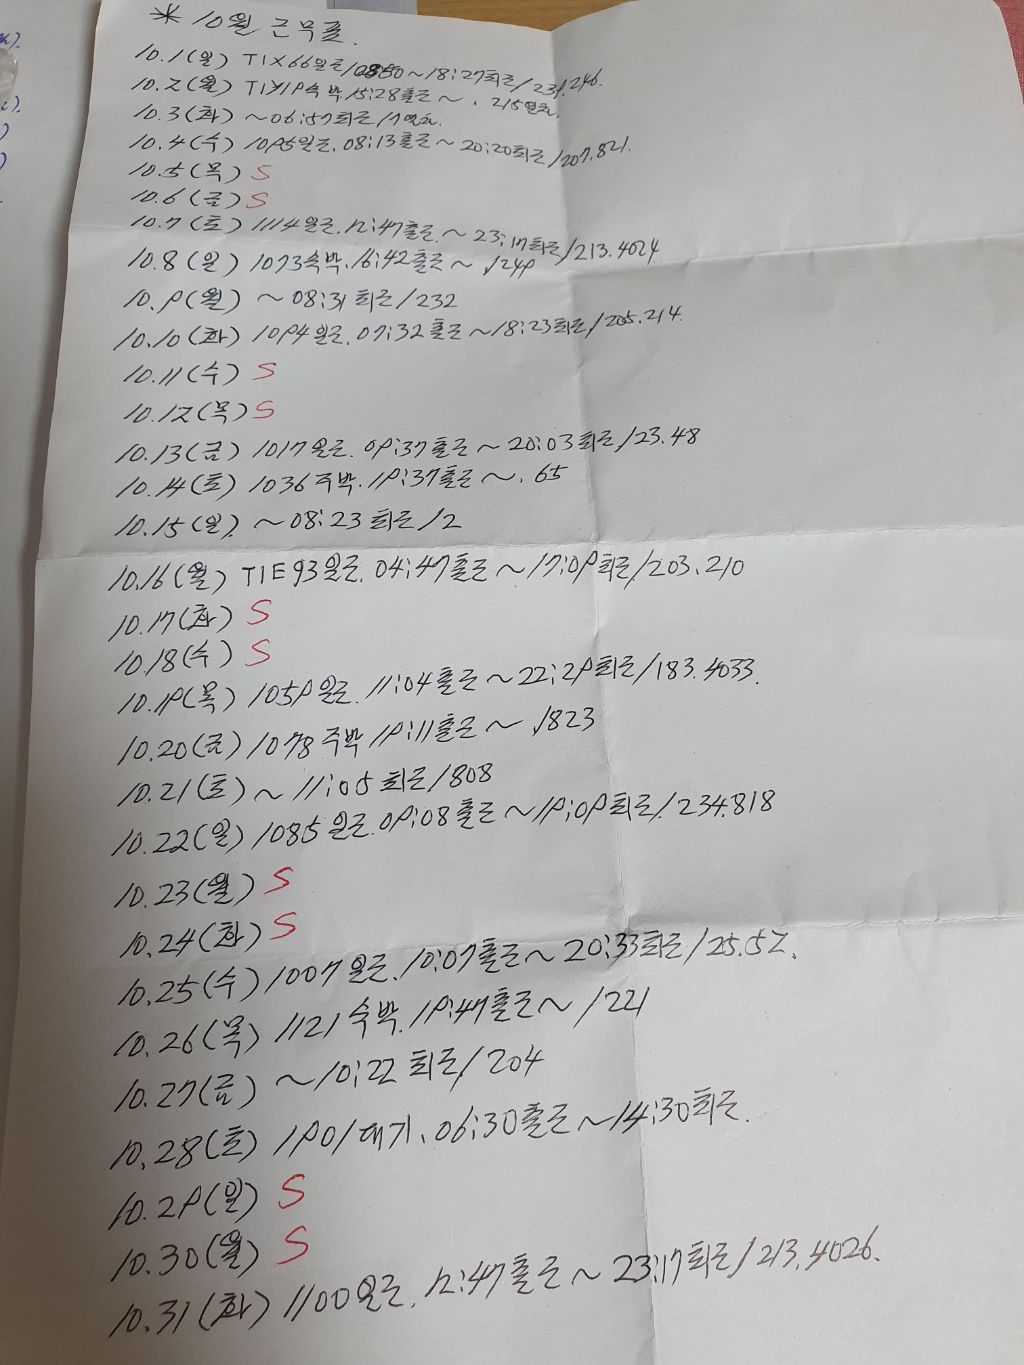 * 10월 근무표.
10.1(일) T1X66일근/08:50~18:27퇴근/231.246.
10.2(월) T1Y19숙박, 15:28출근~. 215열차.
10.3(화) ~06:57퇴근/열차.
10.4(수) 1095일근, 08:13출근~20:20퇴근/207.821.
10.5(목) S
10.6(금) S
10.7(토) 1114일근, 12:47출근~23:17퇴근/213.4024
10.8(일) 1073숙박, 16:42출근~./249
10.9(월) ~08:31퇴근/232
10.10(화) 1094일근, 07:32출근~18:23퇴근/205.214.
10.11(수) S
10.12(목) S
10.13(금) 1017일근. 09:37출근~20:03퇴근/23.48
10.14(토) 1036주박. 19:37출근~. 65
10.15(일) ~08:23퇴근/2
10.16(월) T1E93일근. 04:47출근~17:09퇴근/203.210
10.17(화) S
10.18(수) S
10.19(목) 1059일근. 11:04출근~22:29퇴근/183.4033.
10.20(금) 1078주박 19:11출근~./823
10.21(토) ~11:05퇴근/808
10.22(일) 1085일근. 09:08출근~19:09퇴근/.234.818
10.23(월) S
10.24(화) S
10.25(수) 1007일근. 10:07출근~20:33퇴근/25.52.
10.26(목) 1121숙박. 19:47출근~/221
10.27(금) ~10:22퇴근/204
10.28(토) 1901대기. 06:30출근~14:30퇴근.
10.29(일) S
10.30(월) S
10.31(화) 1100일근. 12:47출근~23:17퇴근/213.4026.